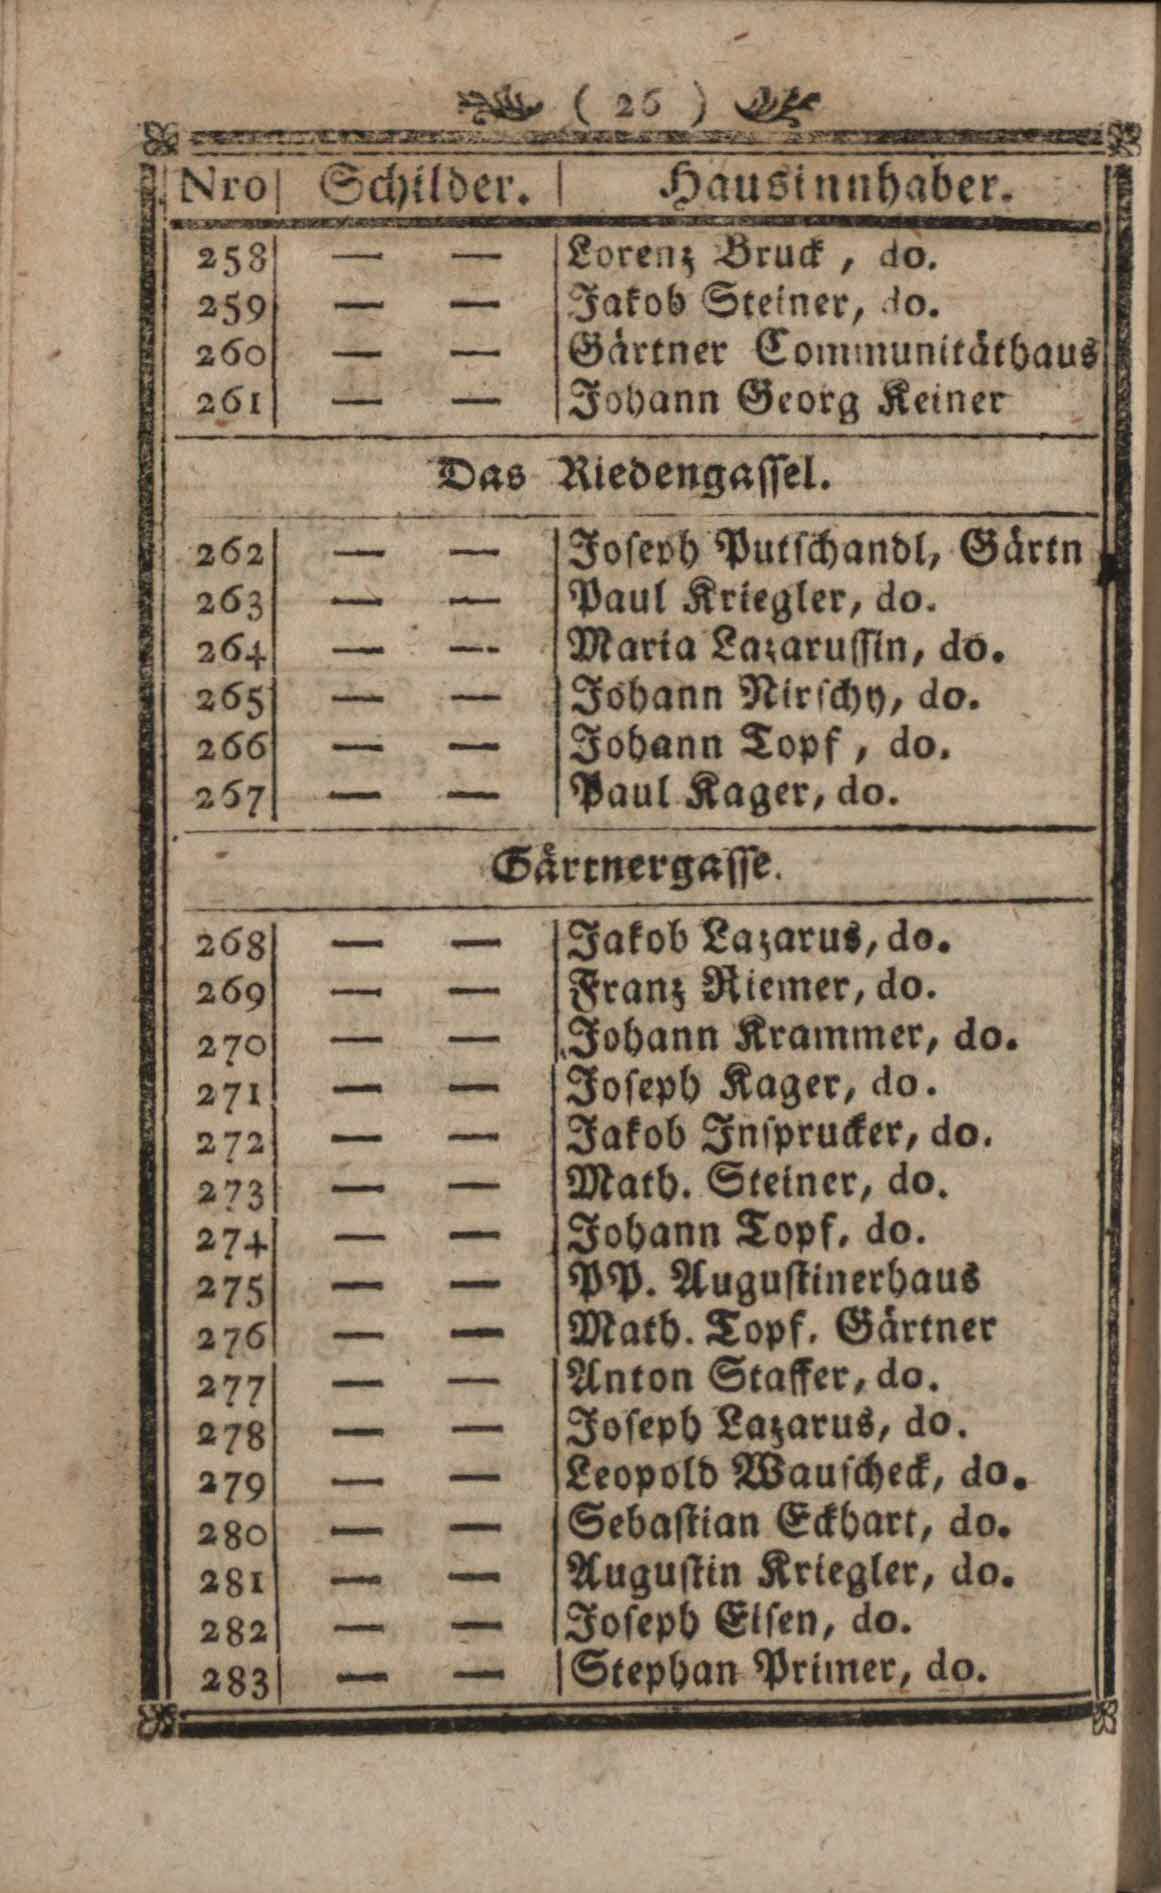 ( 26 )
Nro Schilder. Hausinnhaber.
258 — — Lorenz Bruck, do.
259 — — Jakob Steiner, do.
260 — — Gärtner Communitäthaus
261 — — Johann Georg Keiner
Das Riedengassel.
262 — — Joseph Putschandl, Gärtn
263 — — Paul Kriegler, do.
264 — — Maria Lazarussin, do.
265 — — Johann Nirschy, do.
266 — — Johann Topf, do.
267 — — Paul Kager, do.
Gärtnergasse.
268 — — Jakob Lazarus, do.
269 — — Franz Riemer, do.
270 — — Johann Krammer, do.
271 — — Joseph Kager, do.
272 — — Jakob Insprucker, do.
273 — — Math. Steiner, do.
274 — — Johann Topf, do.
275 — — PP. Augustinerhaus
276 — — Math. Topf, Gärtner
277 — — Anton Staffer, do.
278 — — Joseph Lazarus, do.
279 — — Leopold Wauscheck, do.
280 — — Sebastian Eckhart, do.
281 — — Augustin Kriegler, do.
282 — — Joseph Eisen, do.
283 — — Stephan Primer, do.